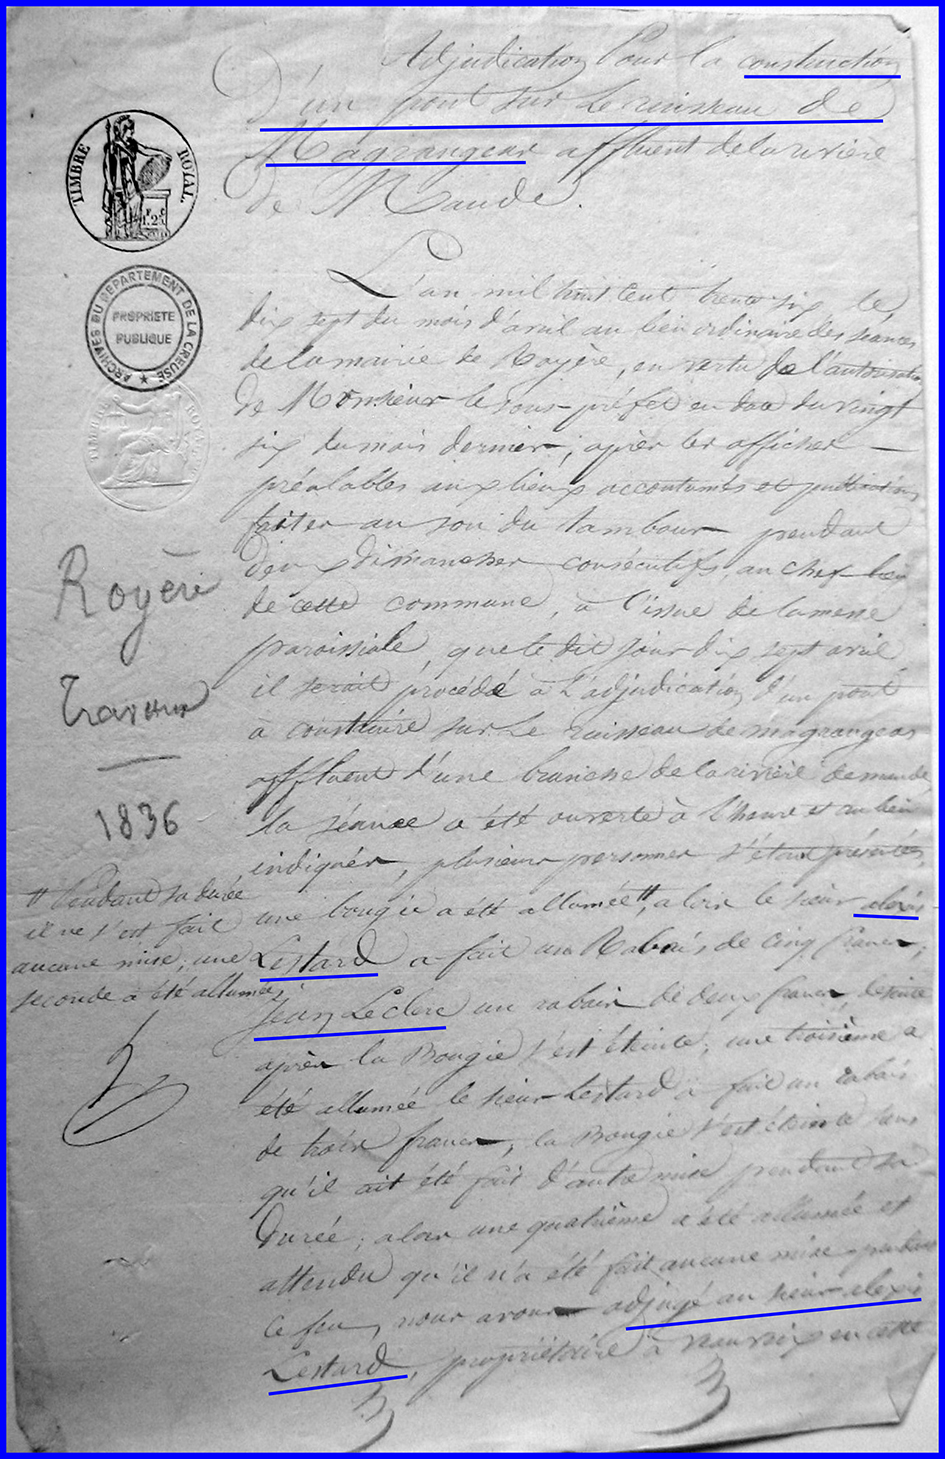 Adjudication Pour la construction
D'un pont sur le ruisseau de
Magrangeas affluent de la rivière
de Maude.
TIMBRE ROYAL
ARCHIVES DU DEPARTEMENT DE LA CREUSE
PROPRIETE
PUBLIQUE
L'an mil huit cent trente six le
dix sept du mois d'avril au lieu ordinaire des séances
de la mairie de Royère, en vertu de l'autorisation
de Monsieur le sous-préfet en date du vingt
six du mois dernier, après les affiches
préalables aux lieux accoutumés et publications
faites au son du tambour pendant
deux dimanches consécutifs, au chef-lieu
de cette commune, à l'issue de la messe
paroissiale, que le dit jour dix sept avril
il serait procédé à l'adjudication d'un pont
à construire sur le ruisseau de magrangeas
affluent d'une branche de la rivière de maude
la séance a été ouverte à l'heure et au lieu
indiqués, plusieurs personnes s'étant présentés,
une bougie a été allumée #, alors le sieur alexis
Lestard a fait un Rabais de cinq francs,
jean Leclerc un rabais de deux francs, desuite
après la Bougie s'est éteinte; une troisième a
été allumée le sieur Lestard a fait un rabais
de trois francs, la Bougie s'est éteinte sans
qu'il ait été fait d'autre mise pendant sa
durée; alors une quatrième a été allumée et
attendu qu'il n'a été fait aucune mise pendant
ce feu, nous avons adjugé au sieur alexis
Lestard, propriétaire à en cette
Royère
Travaux
1836
# Pendant sa durée
il ne s'est fait
aucune mise; une
seconde a été allumée,